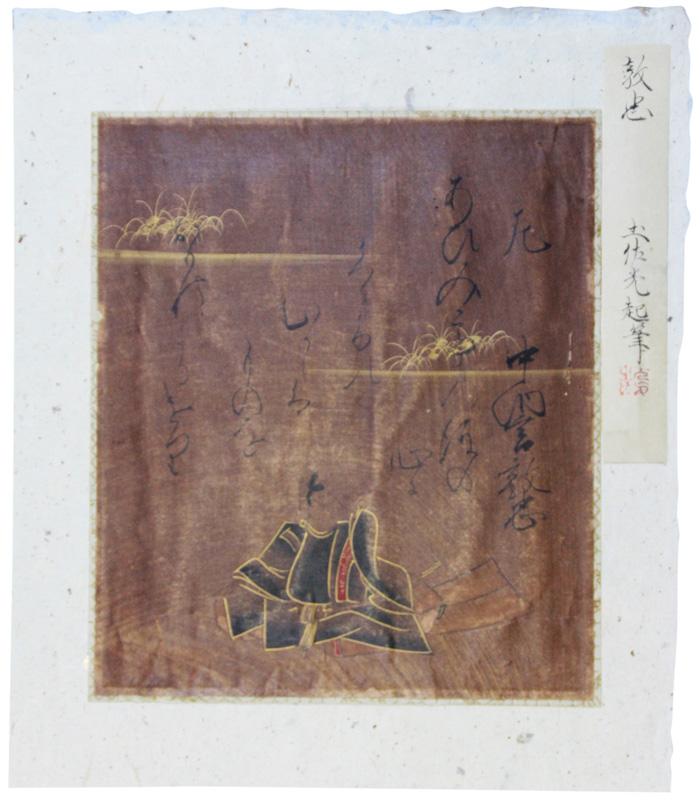 敦忠　土佐光起筆
左　中納言敦忠
あひみての後の
心に
くらふれは
むかしは
ものを
おもはさりけり